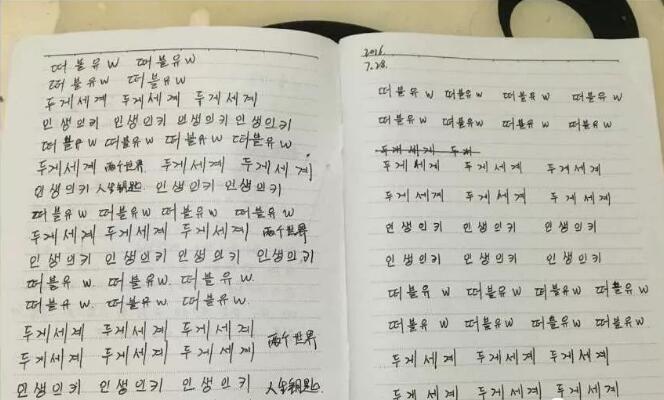 떠블유 W 떠블유 W
떠블유 W 떠블유 W
두게세계 두게세계 두게세계
인생의키 인생의키 인생의키 인생의키
떠블유 W 떠블유 W 떠블유 W 떠블유 W
두게세계 两个世界 두게세계 두게세계
인생의키 人生钥匙 인생의키 인생의키
떠블유 W 떠블유 W 떠블유 W 떠블유 W
두게세계 두게세계 두게세계 两个世界
인생의키 인생의키 인생의키 인생의키
떠블유 W. 떠블유 W. 떠블유 W.
떠블유 W. 떠블유 W. 떠블유 W.
두게세계 두게세계 두게세계
두게세계 두게세계 두게세계 两个世界
인생의키 인생의키 인생의키 人生钥匙
2016.
7.28.
떠블유 W 떠블유 W 떠블유 W 떠블유 W
떠블유 W 떠블유 W 떠블유 W 떠블유 W
두게세계 두게
두게세계 두게세계 두게세계
두게세계 두게세계 두게세계
인생의키 인생의키 인생의키
인생의키 인생의키 인생의키
떠블유 W 떠블유 W 떠블유 W 떠블유 W
떠블유 W 떠블유 W 떠블유 W 떠블유 W.
두게세계 두게세계 두게세계
두게세계 두게세계 두게세계